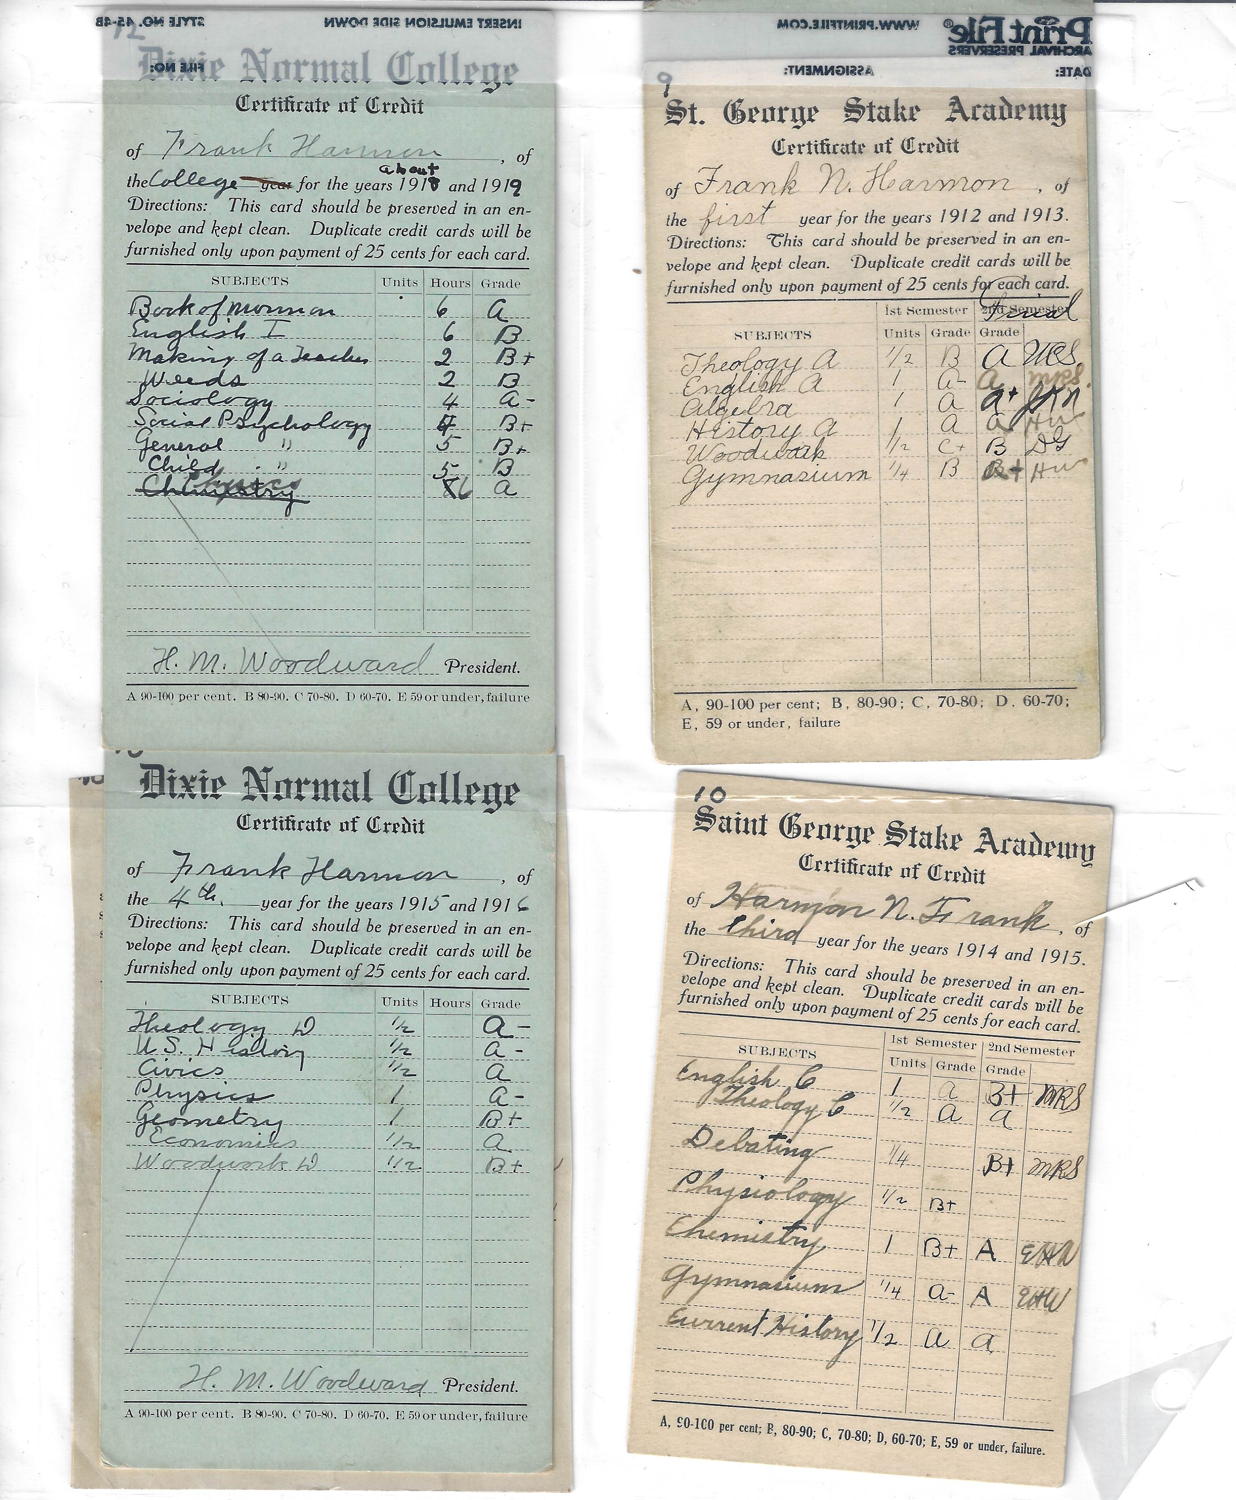 STYLE NO. 45-4B
INSERT EMULSION SIDE DOWN
12
FILE NO:
Dixie Normal College
Certificate of Credit
of Frank Harmon, of
about
the College year for the years 1918 and 1919
Directions: This card should be preserved in an en-
velope and kept clean. Duplicate credit cards will be
furnished only upon payment of 25 cents for each card.
SUBJECTS Units Hours Grade
Book of Mormon 6 A
English I 6 B
Making of a Teacher 2 B+
Weeds 2 B
Sociology 4 A-
Social Psychology B+
General " 5 B+
Child " 5 B
Chemistry Physics 6 A
H. M. Woodward President.
A 90-100 per cent. B 80-90. C 70-80. D 60-70. E 59 or under, failure
WWW.PRINTFILE.COM
Print File®
ARCHIVAL PRESERVERS
ASSIGNMENT:
DATE:
9
St. George Stake Academy
Certificate of Credit
of Frank N. Harmon, of
the first year for the years 1912 and 1913.
Directions: This card should be preserved in an en-
velope and kept clean. Duplicate credit cards will be
furnished only upon payment of 25 cents for each card.
1st Semester 2nd Semester
SUBJECTS Units Grade Grade
Theology A 1/2 B A MRS
English A 1 A- A MRS.
Algebra 1 A A+
History A 1 A A HW
Woodwork 1/2 C+ B DG
Gymnasium 1/4 B B+ HW
A, 90-100 per cent; B, 80-90; C, 70-80; D, 60-70;
E, 59 or under, failure
Dixie Normal College
Certificate of Credit
of Frank Harmon, of
the 4th. year for the years 1915 and 1916
Directions: This card should be preserved in an en-
velope and kept clean. Duplicate credit cards will be
furnished only upon payment of 25 cents for each card.
SUBJECTS Units Hours Grade
Theology D 1/2 A-
U.S. History 1/2 A-
Civics 1/2 A
Physics 1 A-
Geometry 1 B+
Economics 1/2 A
Woodwork D 1/2 B+
H. M. Woodward President.
A 90-100 per cent. B 80-90. C 70-80. D 60-70. E 59 or under, failure
10
Saint George Stake Academy
Certificate of Credit
of Harmon N. Frank, of
the third year for the years 1914 and 1915.
Directions: This card should be preserved in an en-
velope and kept clean. Duplicate credit cards will be
furnished only upon payment of 25 cents for each card.
1st Semester 2nd Semester
SUBJECTS Units Grade Grade
English C 1 A B+ MRS
Theology C 1/2 A A
Debating 1/4 B+ MRS
Physiology 1/2 B+
Chemistry 1 B+ A EHW
Gymnasium 1/4 A- A EHW
Current History 1/2 A A
A, 90-100 per cent; B, 80-90; C, 70-80; D, 60-70; E, 59 or under, failure.